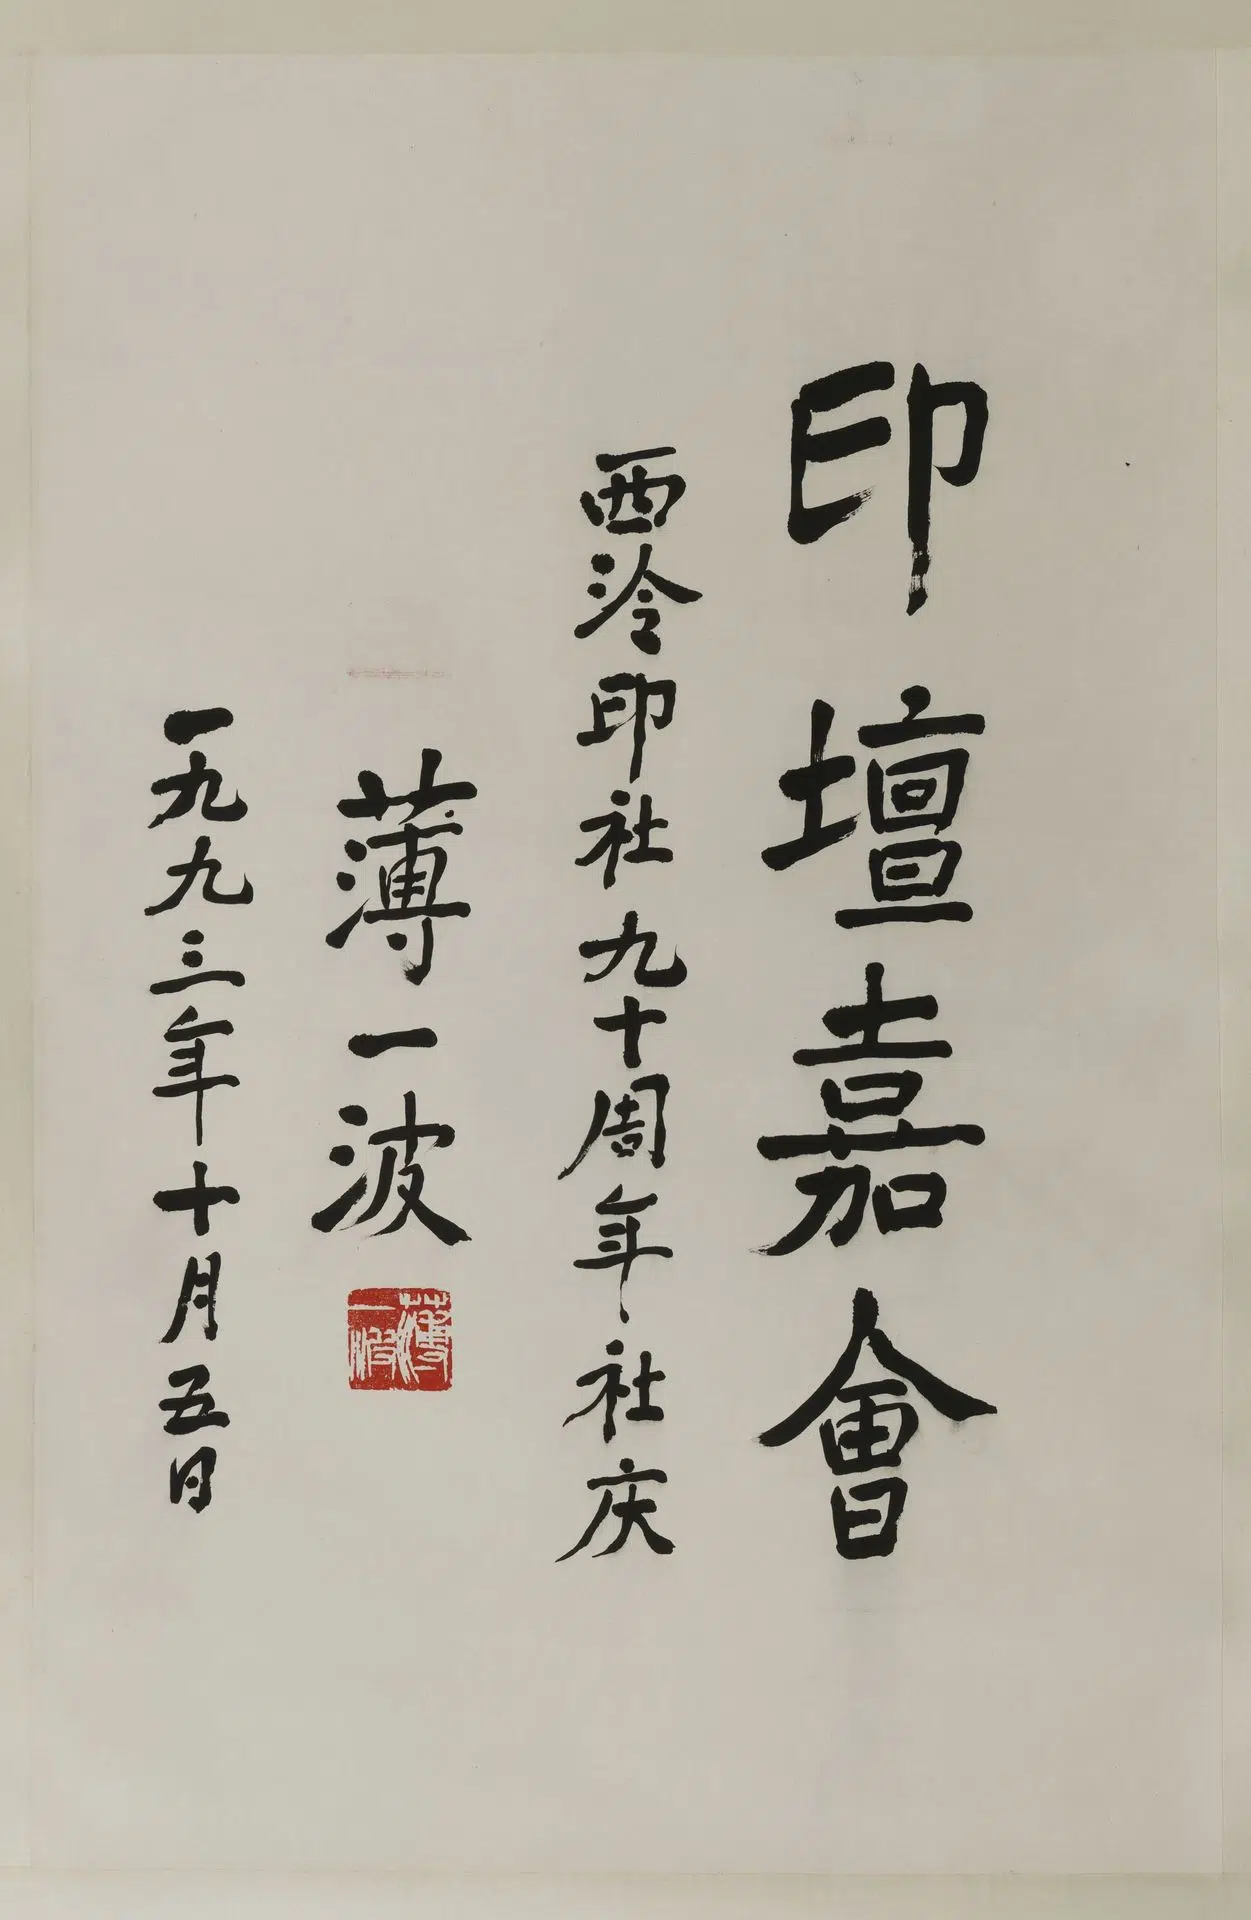 印壇嘉會
西泠印社九十周年社庆
薄一波
薄一波
一九九三年十月五日